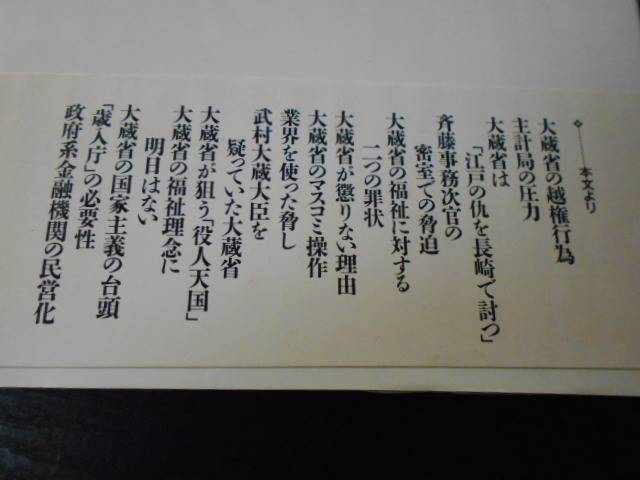 本文より
大蔵省の越権行為
主計局の圧力
大蔵省は
「江戸の仇を長崎で討つ」
斉藤事務次官の
密室での脅迫
大蔵省の福祉に対する
二つの罪状
大蔵省が懲りない理由
大蔵省のマスコミ操作
業界を使った脅し
武村大蔵大臣を
疑っていた大蔵省
大蔵省が狙う「役人天国」
大蔵省の福祉理念に
明日はない
大蔵省の国家主義の台頭
「歳入庁」の必要性
政府系金融機関の民営化